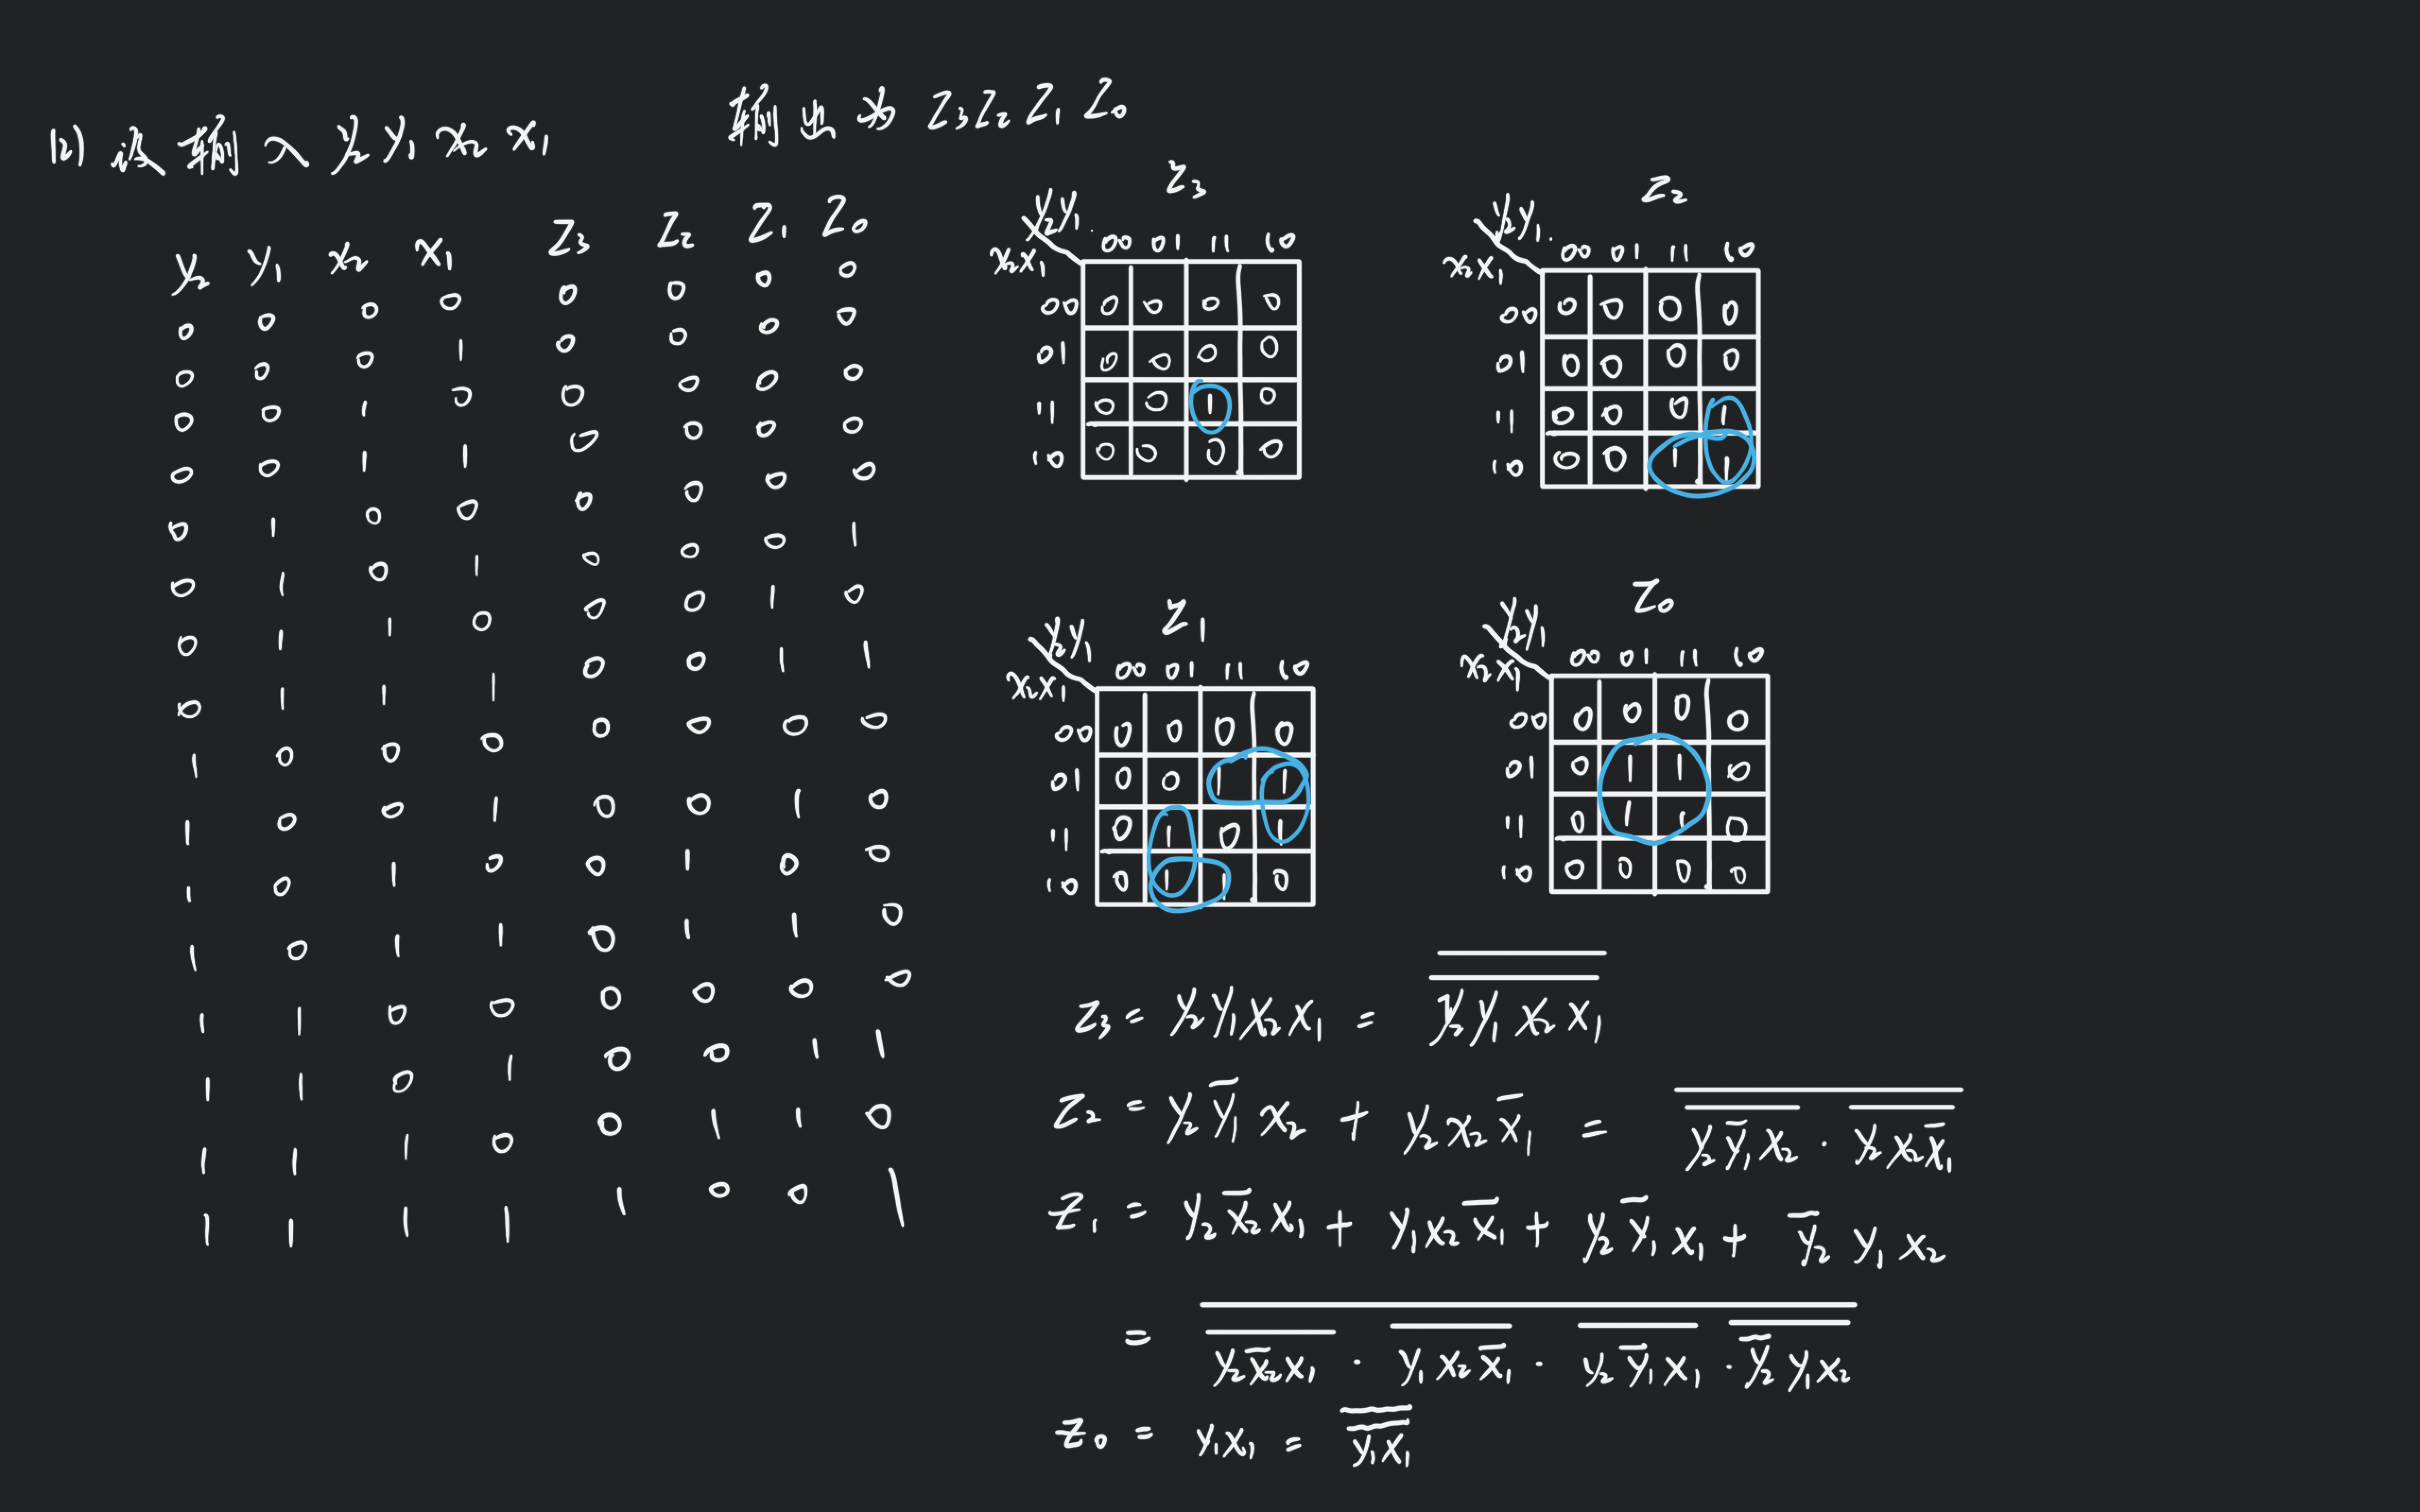 (2) 设输入 y₂ y₁ x₂ x₁ 输出为 Z₃ Z₂ Z₁ Z₀
y₂ y₁ x₂ x₁ Z₃ Z₂ Z₁ Z₀
0 0 0 0 0 0 0 0
0 0 0 1 0 0 0 0
0 0 1 0 0 0 0 0
0 0 1 1 0 0 0 0
0 1 0 0 0 0 0 0
0 1 0 1 0 0 0 1
0 1 1 0 0 0 1 0
0 1 1 1 0 0 1 1
1 0 0 0 0 0 0 0
1 0 0 1 0 0 1 0
1 0 1 0 0 1 0 0
1 0 1 1 0 1 1 0
1 1 0 0 0 0 0 0
1 1 0 1 0 0 1 1
1 1 1 0 0 1 1 0
1 1 1 1 1 0 0 1
Z₃
y₂y₁
x₂x₁ 00 01 11 10
00 0 0 0 0
01 0 0 0 0
11 0 0 1 0
10 0 0 0 0
Z₂
y₂y₁
x₂x₁ 00 01 11 10
00 0 0 0 0
01 0 0 0 0
11 0 0 0 1
10 0 0 1 1
Z₁
y₂y₁
x₂x₁ 00 01 11 10
00 0 0 0 0
01 0 0 1 1
11 0 1 0 1
10 0 1 1 0
Z₀
y₂y₁
x₂x₁ 00 01 11 10
00 0 0 0 0
01 0 1 1 0
11 0 1 1 0
10 0 0 0 0
Z₃ = y₂y₁x₂x₁ = \overline{\overline{y₂y₁x₂x₁}}
Z₂ = y₂\overline{y₁}x₂ + y₂x₂\overline{x₁} = \overline{\overline{y₂\overline{y₁}x₂} · \overline{y₂x₂\overline{x₁}}}
Z₁ = y₂\overline{x₂}x₁ + y₁x₂\overline{x₁} + y₂\overline{y₁}x₁ + \overline{y₂}y₁x₂
= \overline{\overline{y₂\overline{x₂}x₁} · \overline{y₁x₂\overline{x₁}} · \overline{y₂\overline{y₁}x₁} · \overline{\overline{y₂}y₁x₂}}
Z₀ = y₁x₁ = \overline{\overline{y₁x₁}}